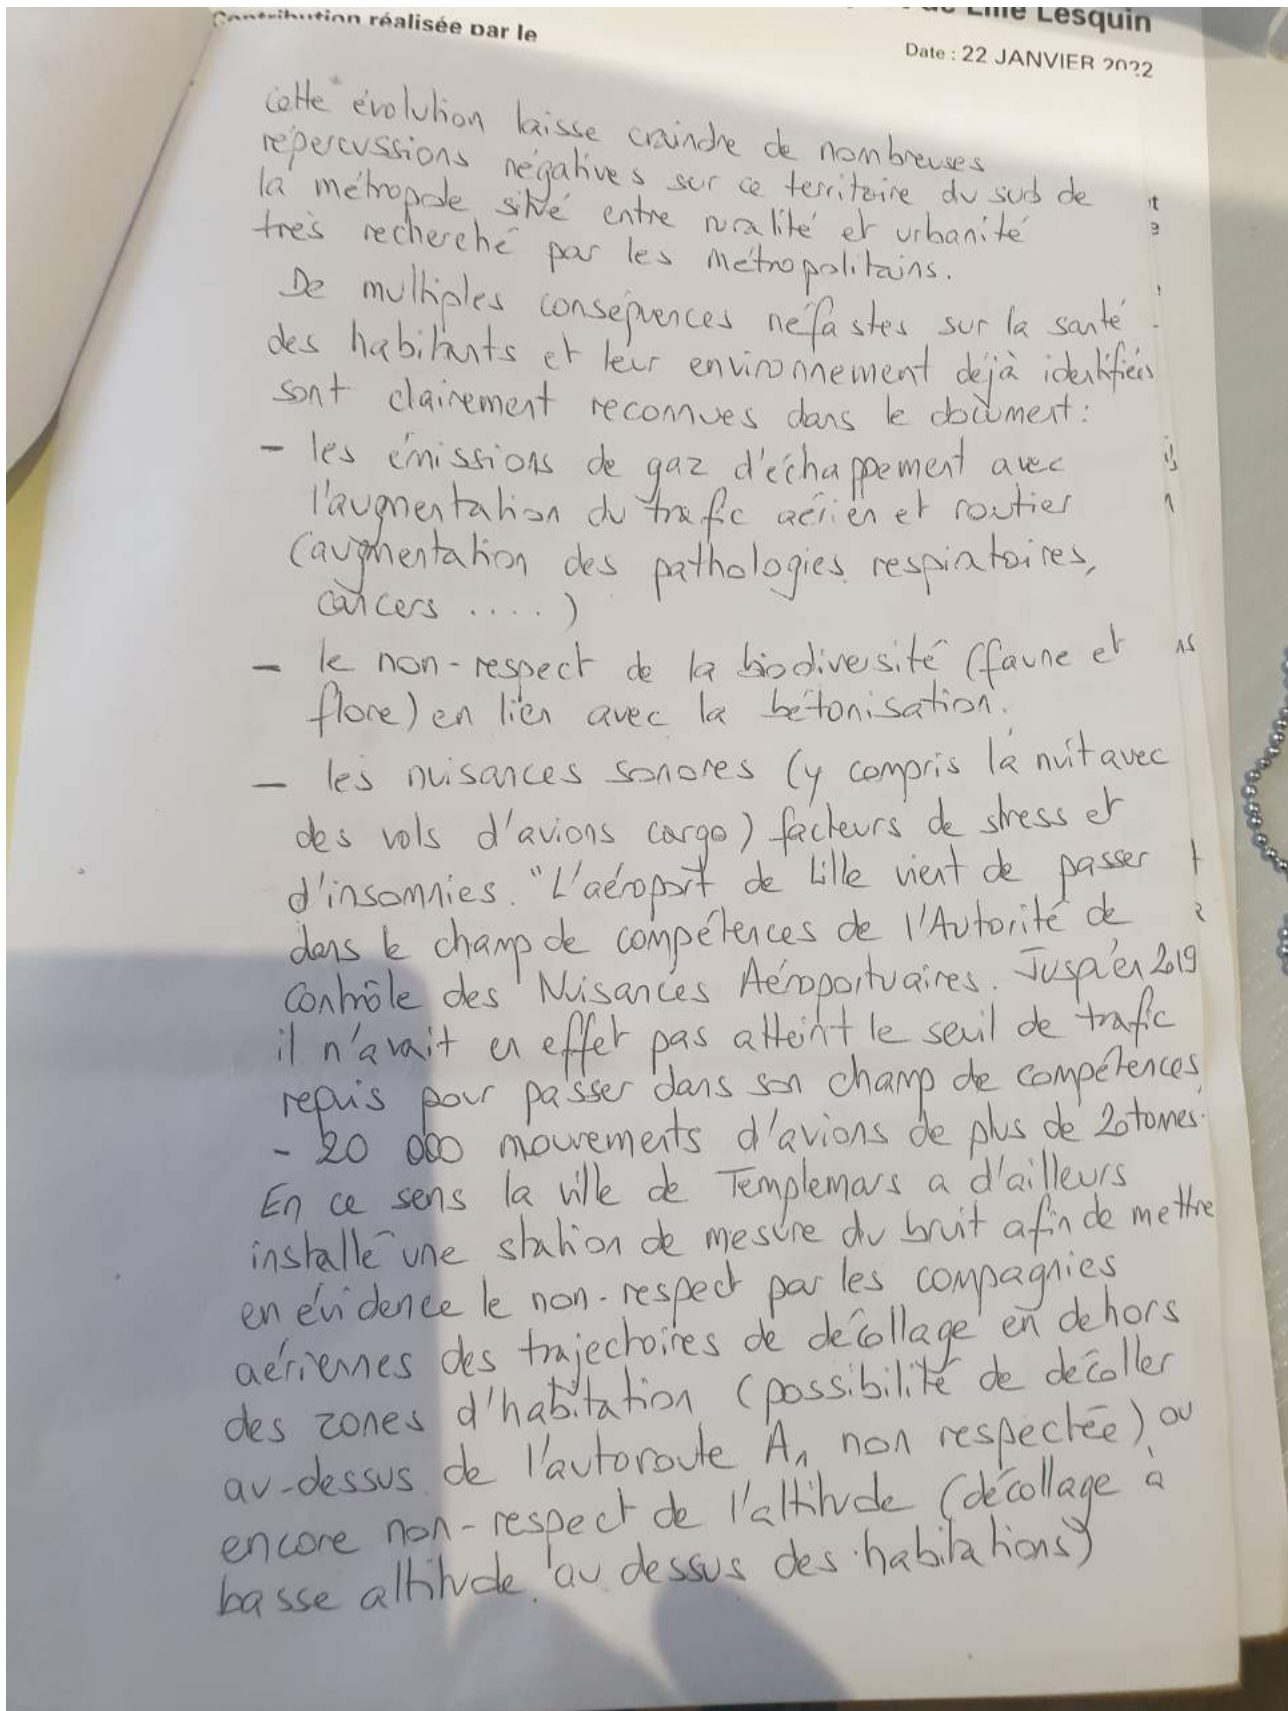 Contribution réalisée par le
de Lille Lesquin
Date : 22 JANVIER 2022
cette évolution laisse craindre de nombreuses
répercussions négatives sur ce territoire du sud de
la métropole situé entre ruralité et urbanité
très recherché par les métropolitains.
De multiples conséquences néfastes sur la santé
des habitants et leur environnement déjà identifiées
sont clairement reconnues dans le document :
- les émissions de gaz d'échappement avec
l'augmentation du trafic aérien et routier
(augmentation des pathologies respiratoires,
cancers .....)
- le non-respect de la biodiversité (faune et
flore) en lien avec la bétonisation.
- les nuisances sonores (y compris la nuit avec
des vols d'avions cargo) facteurs de stress et
d'insomnies. "L'aéroport de Lille vient de passer
dans le champ de compétences de l'Autorité de
Contrôle des Nuisances Aéroportuaires. Jusqu'en 2019
il n'avait en effet pas atteint le seuil de trafic
requis pour passer dans son champ de compétences
- 20 000 mouvements d'avions de plus de 20 tonnes.
En ce sens la ville de Templemars a d'ailleurs
installé une station de mesure du bruit afin de mettre
en évidence le non-respect par les compagnies
aériennes des trajectoires de décollage en dehors
des zones d'habitation (possibilité de décoller
au-dessus de l'autoroute A1 non respectée) ou
encore non-respect de l'altitude (décollage à
basse altitude au dessus des habitations)